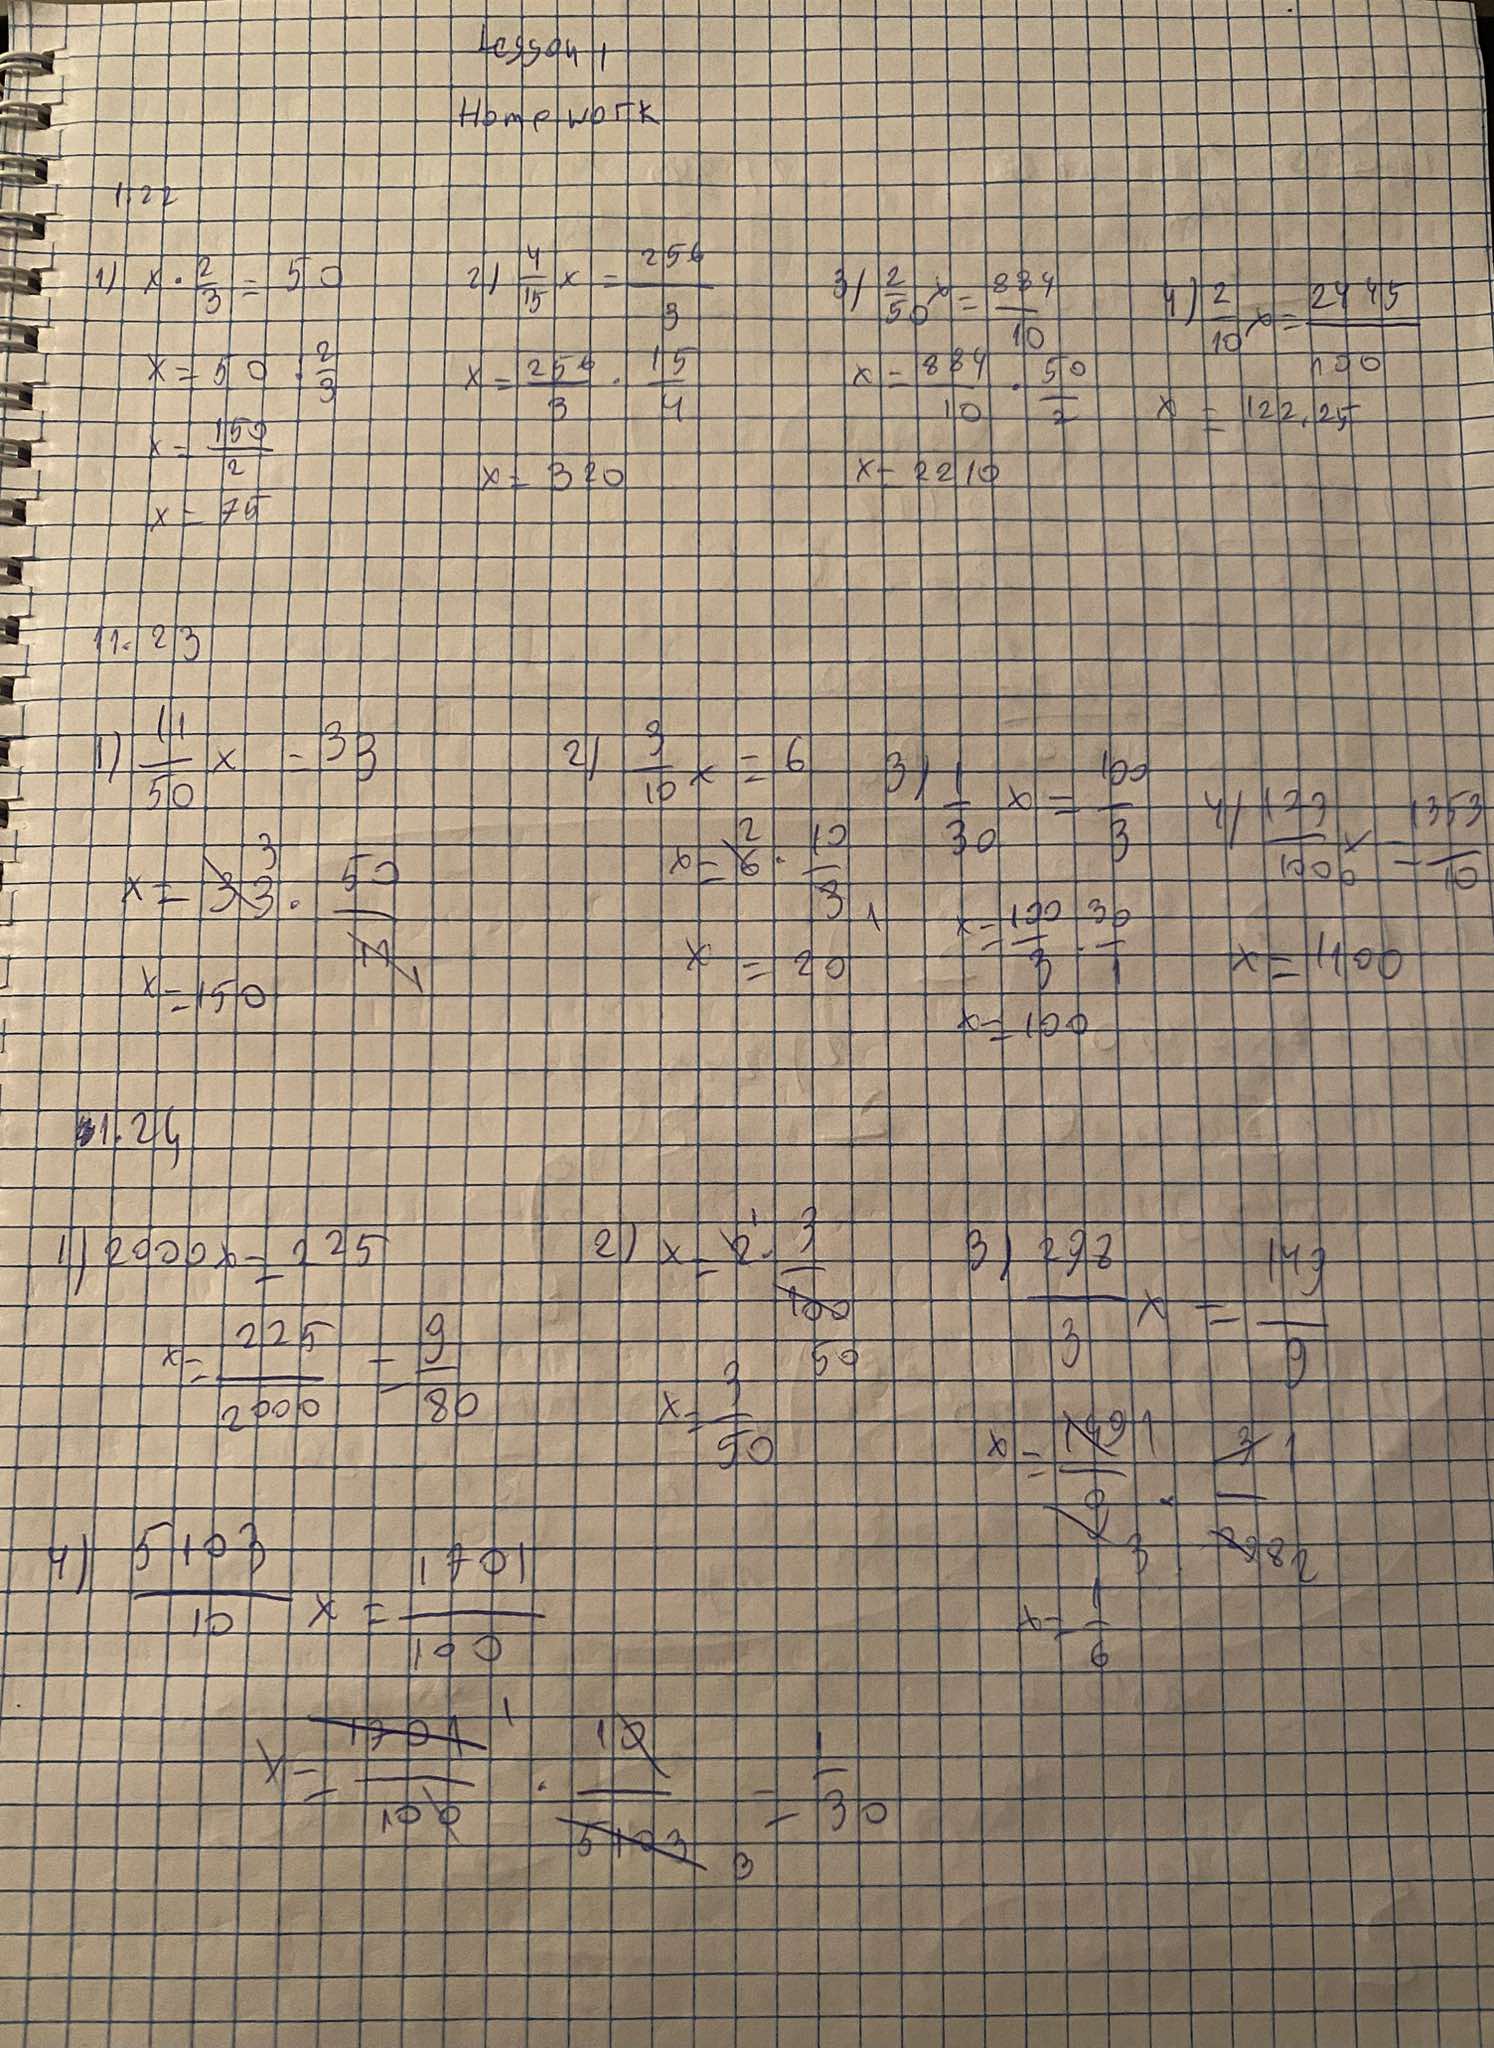 Lesson 1
Homework
1.22
1) x · 2/3 = 50
x = 50 · 2/3
x = 150/2
x = 75
2) 4/15 x = 256/3
x = 256/3 · 15/4
x = 320
3) 2/50 x = 884/10
x = 884/10 · 50/2
x = 2210
4) 2/10 x = 2445/100
x = 122,25
11.23
1) 11/50 x = 33
x = 33 3 · 50/11 1
x = 150
2) 3/10 x = 6
x = 6 2 · 10/3 1
x = 20
3) 1/30 x = 100/3
x = 100/3 · 30/1
x = 100
4) 123/1000 x = 1353/10
x = 1100
1.24
1) 2000x = 225
x = 225/2000 = 9/80
2) x = 2 1 · 3/100 50
x = 3/50
3) 298/3 x = 149/9
x = 149 1/9 3 · 3 1/298 2
x = 1/6
4) 5103/10 x = 1701/100
x = 1701 1/100 · 10/5103 3 = 1/30